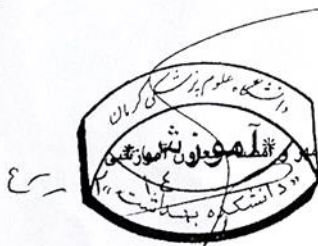 دانشگاه علوم پزشکی کرمان
آموزش
مهر و امضاء معاون آموزشی
«دانشکده بهداشت»